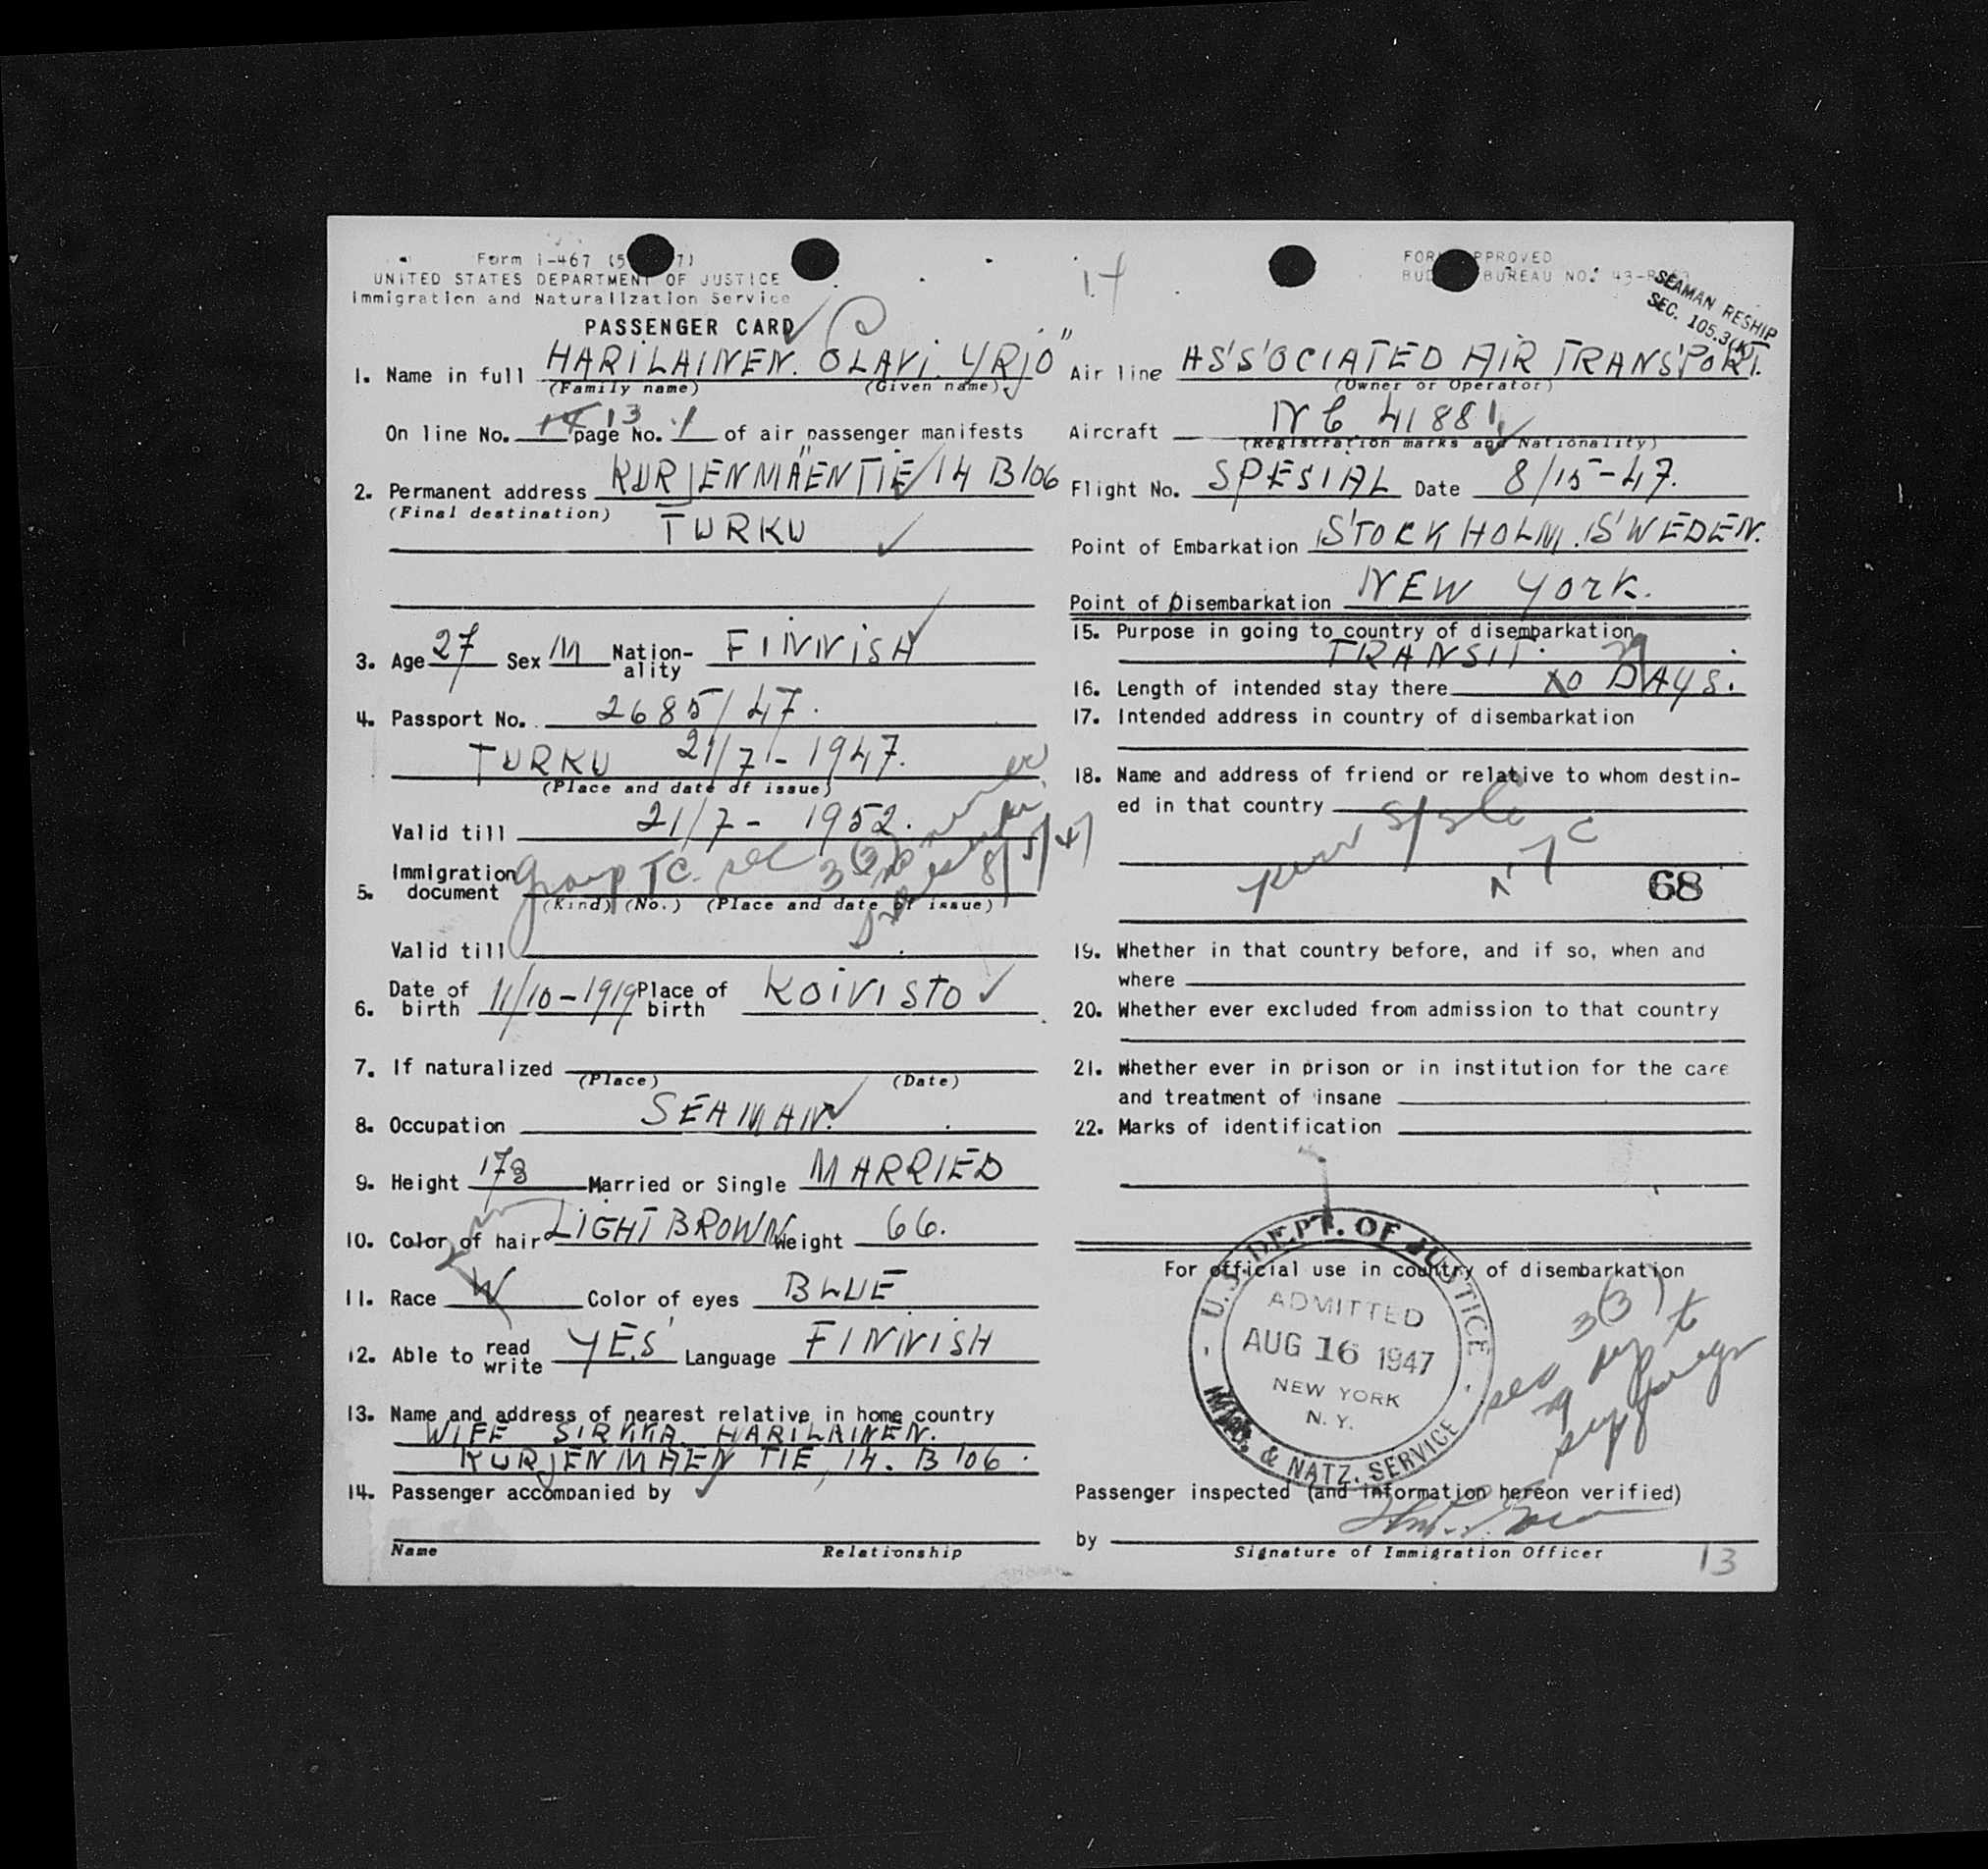 Form I-467 (5 7)
UNITED STATES DEPARTMENT OF JUSTICE
Immigration and Naturalization Service
PASSENGER CARD
14
FOR PPROVED
BUD BUREAU NO. 43-R
SEAMAN RESHIP
SEC. 105.3(K)
1. Name in full HARILAINEN. OLAVI. YRJÖ
(Family name) (Given name)
On line No. 14 13 page No. 1 of air passenger manifests
2. Permanent address KURJENMÄENTIE 14 B 106
(Final destination) TURKU
3. Age 27 Sex M Nation-ality FINNISH
4. Passport No. 2685/47.
TURKU 21/7-1947.
(Place and date of issue)
Valid till 21/7- 1952.
5. Immigration document group TC. sec 3(3) 8/5/47
(Kind) (No.) (Place and date of issue)
Valid till
6. Date of birth 11/10-1919 Place of birth KOIVISTO
7. If naturalized
(Place) (Date)
8. Occupation SEAMAN.
9. Height 178 Married or Single MARRIED
10. Color of hair LIGHT BROWN Weight 66.
11. Race W Color of eyes BLUE
12. Able to read write YES Language FINNISH
13. Name and address of nearest relative in home country
WIFE SIRKKA HARILAINEN.
KURJENMAEN TIE, 14. B 106.
14. Passenger accompanied by
Name Relationship
Air line ASSOCIATED AIR TRANSPORT.
(Owner or Operator)
Aircraft NC 41881
(Registration marks and Nationality)
Flight No. SPESIAL Date 8/15-47.
Point of Embarkation STOCKHOLM. SWEDEN.
Point of Disembarkation NEW YORK.
15. Purpose in going to country of disembarkation
TRANSIT.
16. Length of intended stay there 29 DAYS.
17. Intended address in country of disembarkation
18. Name and address of friend or relative to whom destin-
ed in that country
NYC
68
19. Whether in that country before, and if so, when and
where
20. Whether ever excluded from admission to that country
21. Whether ever in prison or in institution for the care
and treatment of insane
22. Marks of identification
For official use in country of disembarkation
U.S. DEPT. OF JUSTICE
ADMITTED
AUG 16 1947
NEW YORK
N. Y.
IMMIG. & NATZ. SERVICE
sec 3(3)
29
Passenger inspected (and information hereon verified)
by
Signature of Immigration Officer
13